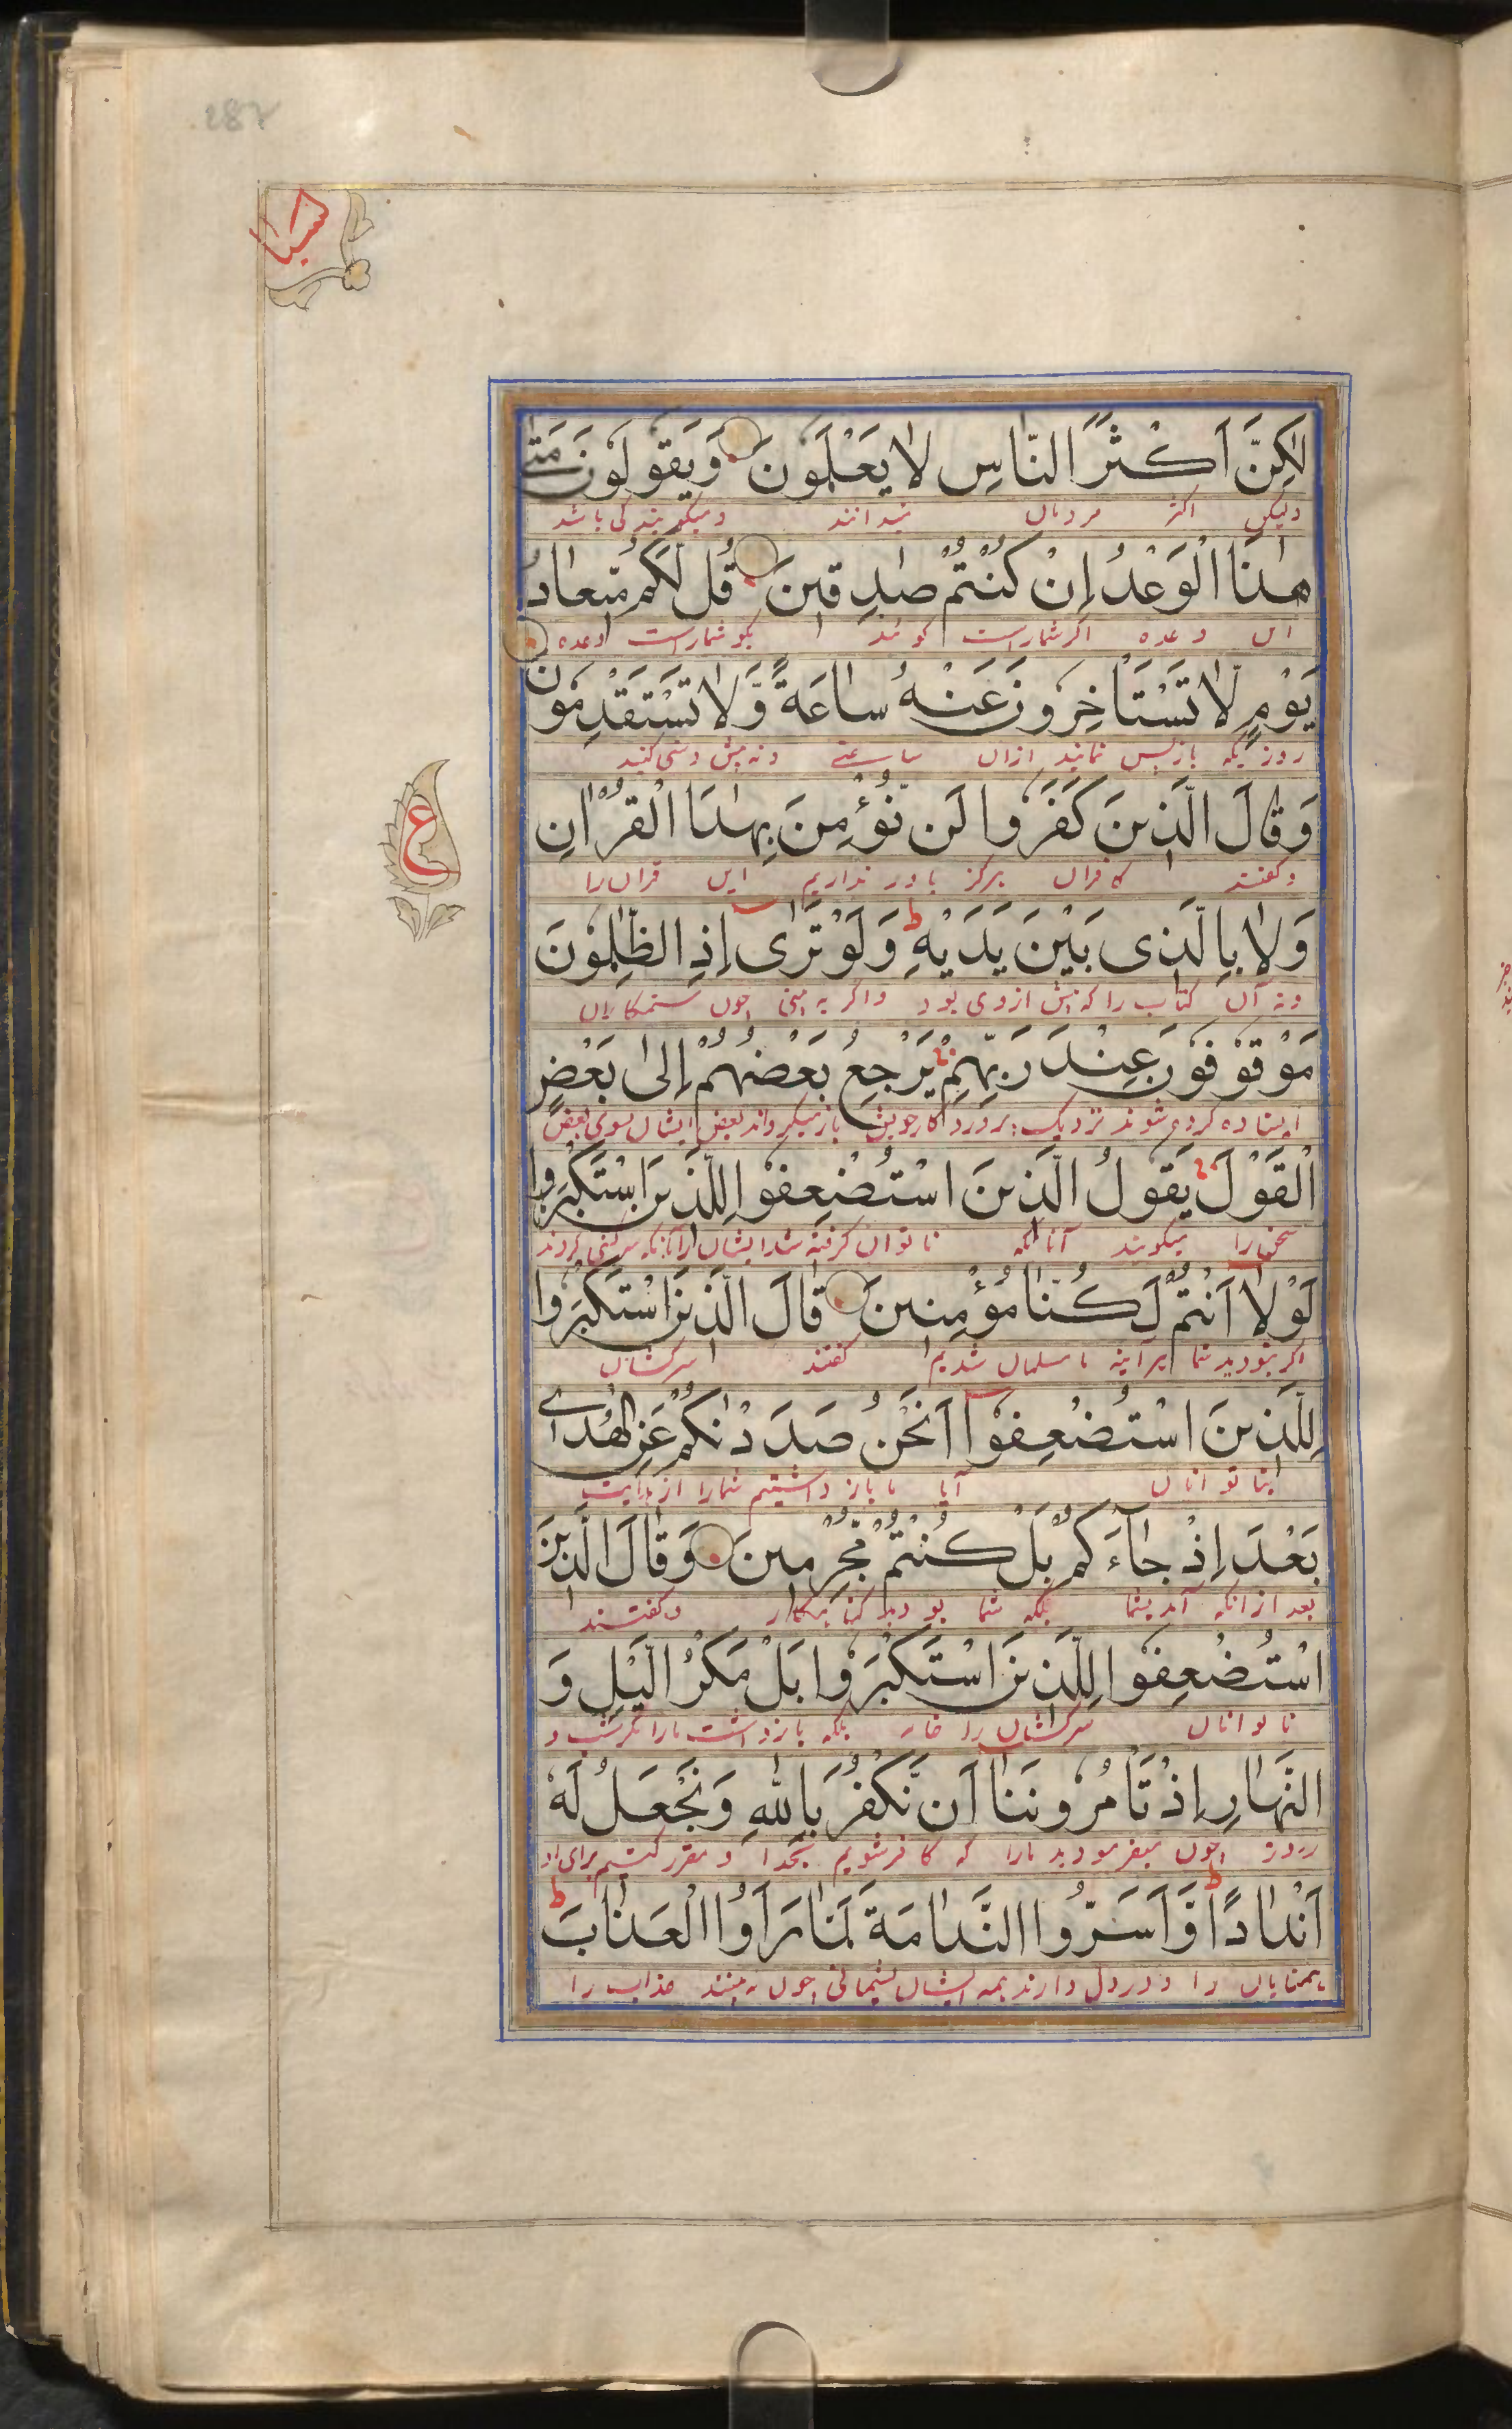 287
سبا
لٰكِنَّ اَكْثَرَ النَّاسِ لَا يَعْلَمُونَ وَيَقُولُونَ مَتٰى
ولیکن اکثر مردمان نمیدانند و میگویند کی باشد
هٰذَا الْوَعْدُ اِنْ كُنْتُمْ صٰدِقِينَ قُل لَّكُم مِّيعَادُ
این وعده اگر شما راست گوئید بگو شماراست وعده
يَوْمٍ لَّا تَسْتَاْخِرُونَ عَنْهُ سَاعَةً وَّلَا تَسْتَقْدِمُونَ
روزیکه بازپس نمانید ازان ساعتی و نه پیش دستی کنید
ع
وَقَالَ الَّذِينَ كَفَرُوا لَن نُّؤْمِنَ بِهٰذَا الْقُرْاٰنِ
و گفتند کافران هرگز باور نداریم این قران را
وَلَا بِالَّذِى بَيْنَ يَدَيْهِ ط وَلَوْ تَرٰى اِذِ الظّٰلِمُونَ
و نه آن کتاب را که پیش ازوی بود و اگر به بینی چون ستمکاران
مَوْقُوفُونَ عِنْدَ رَبِّهِمْ يَرْجِعُ بَعْضُهُمْ اِلٰى بَعْضٍ
ایستاده کرده شوند نزدیک پروردگار خویش باز میگرداند بعض ایشان بسوی بعض
الْقَوْلَ يَقُولُ الَّذِينَ اسْتُضْعِفُوا لِلَّذِينَ اسْتَكْبَرُوا
سخن را میگویند آنانکه ناتوان گرفته شد ایشان را آنانکه سرکشی کردند
لَوْلَا اَنْتُمْ لَكُنَّا مُؤْمِنِينَ قَالَ الَّذِينَ اسْتَكْبَرُوا
اگر نبودید شما هرآینه ما مسلمان شدیم گفتند سرکشان
لِلَّذِينَ اسْتُضْعِفُوا اَنَحْنُ صَدَدْنٰكُمْ عَنِ الْهُدٰى
بناتوانان آیا ما باز داشتیم شمارا از هدایت
بَعْدَ اِذْ جَآءَكُمْ بَلْ كُنْتُمْ مُّجْرِمِينَ وَقَالَ الَّذِينَ
بعد ازانکه آمد بشما بلکه شما بودید گناهگار و گفتند
اسْتُضْعِفُوا لِلَّذِينَ اسْتَكْبَرُوا بَلْ مَكْرُ الَّيْلِ وَ
ناتوانان سرکشان را بلکه بازداشت مارا مکر شب و
النَّهَارِ اِذْ تَاْمُرُونَنَا اَن نَّكْفُرَ بِاللّٰهِ وَنَجْعَلَ لَهُ
روز چون میفرمودید مارا که کافر شویم بخدا و مقرر کنیم برای او
اَنْدَادًا ط وَّاَسَرُّوا النَّدَامَةَ لَمَّا رَاَوُا الْعَذَابَ ط
همتایان را و در دل دارند همه ایشان پشیمانی چون به بینند عذاب را